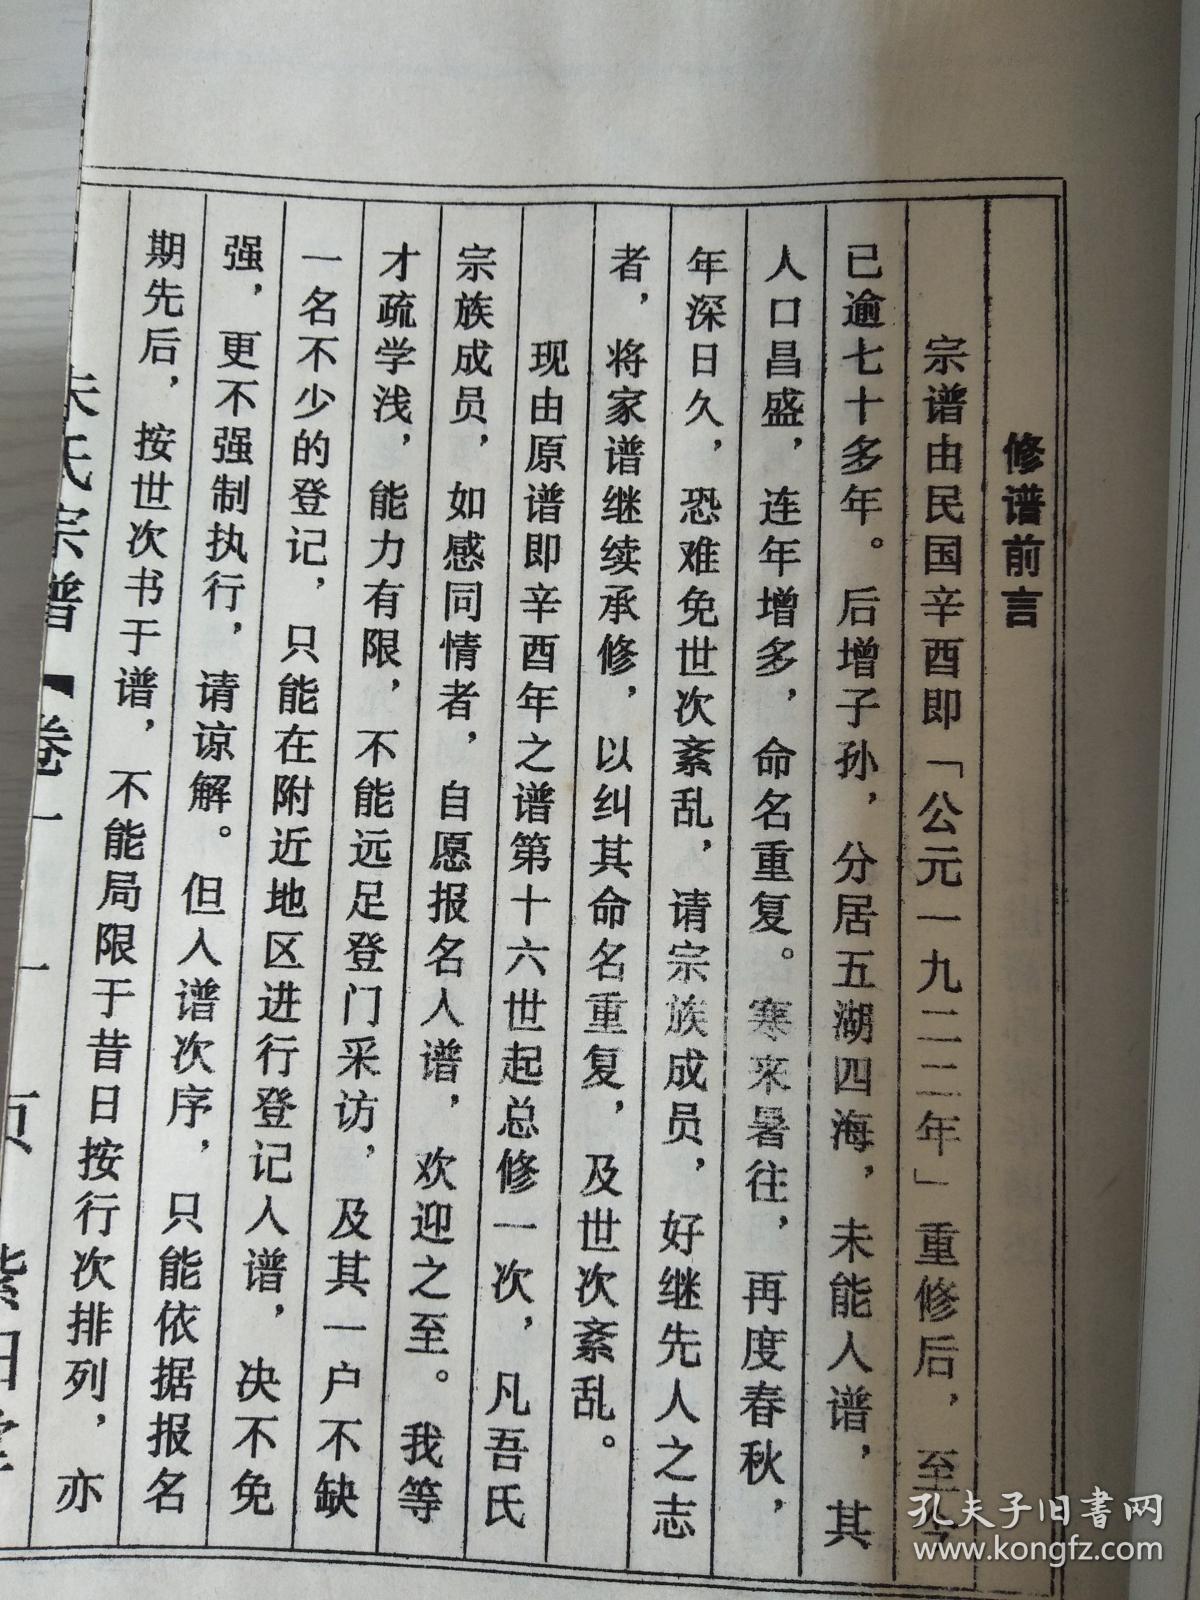 修谱前言
宗谱由民国辛酉即「公元一九二二年」重修后，至今
已逾七十多年。后增子孙，分居五湖四海，未能入谱，其
人口昌盛，连年增多，命名重复。寒来暑往，再度春秋，
年深日久，恐难免世次紊乱，请宗族成员，好继先人之志
者，将家谱继续承修，以纠其命名重复，及世次紊乱。
现由原谱即辛酉年之谱第十六世起总修一次，凡吾氏
宗族成员，如感同情者，自愿报名入谱，欢迎之至。我等
才疏学浅，能力有限，不能远足登门采访，及其一户不缺
一名不少的登记，只能在附近地区进行登记入谱，决不免
强，更不强制执行，请谅解。但入谱次序，只能依据报名
期先后，按世次书于谱，不能局限于昔日按行次排列，亦
氏宗谱 卷一 一页
孔夫子旧书网
www.kongfz.com